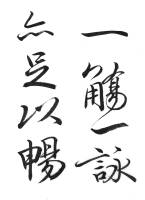 一觴一詠
亦足以暢